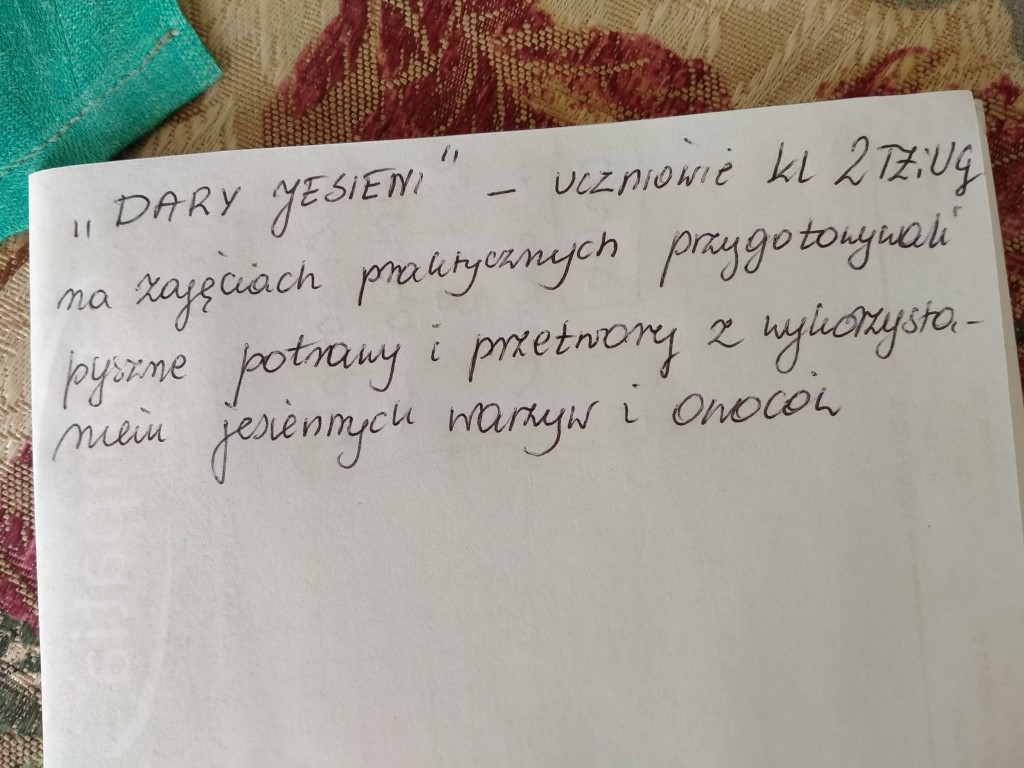 „DARY JESIENI" – uczniowie kl 2TŻiUG
na zajęciach praktycznych przygotowywali
pyszne potrawy i przetwory z wykorzysta-
niem jesiennych warzyw i owoców